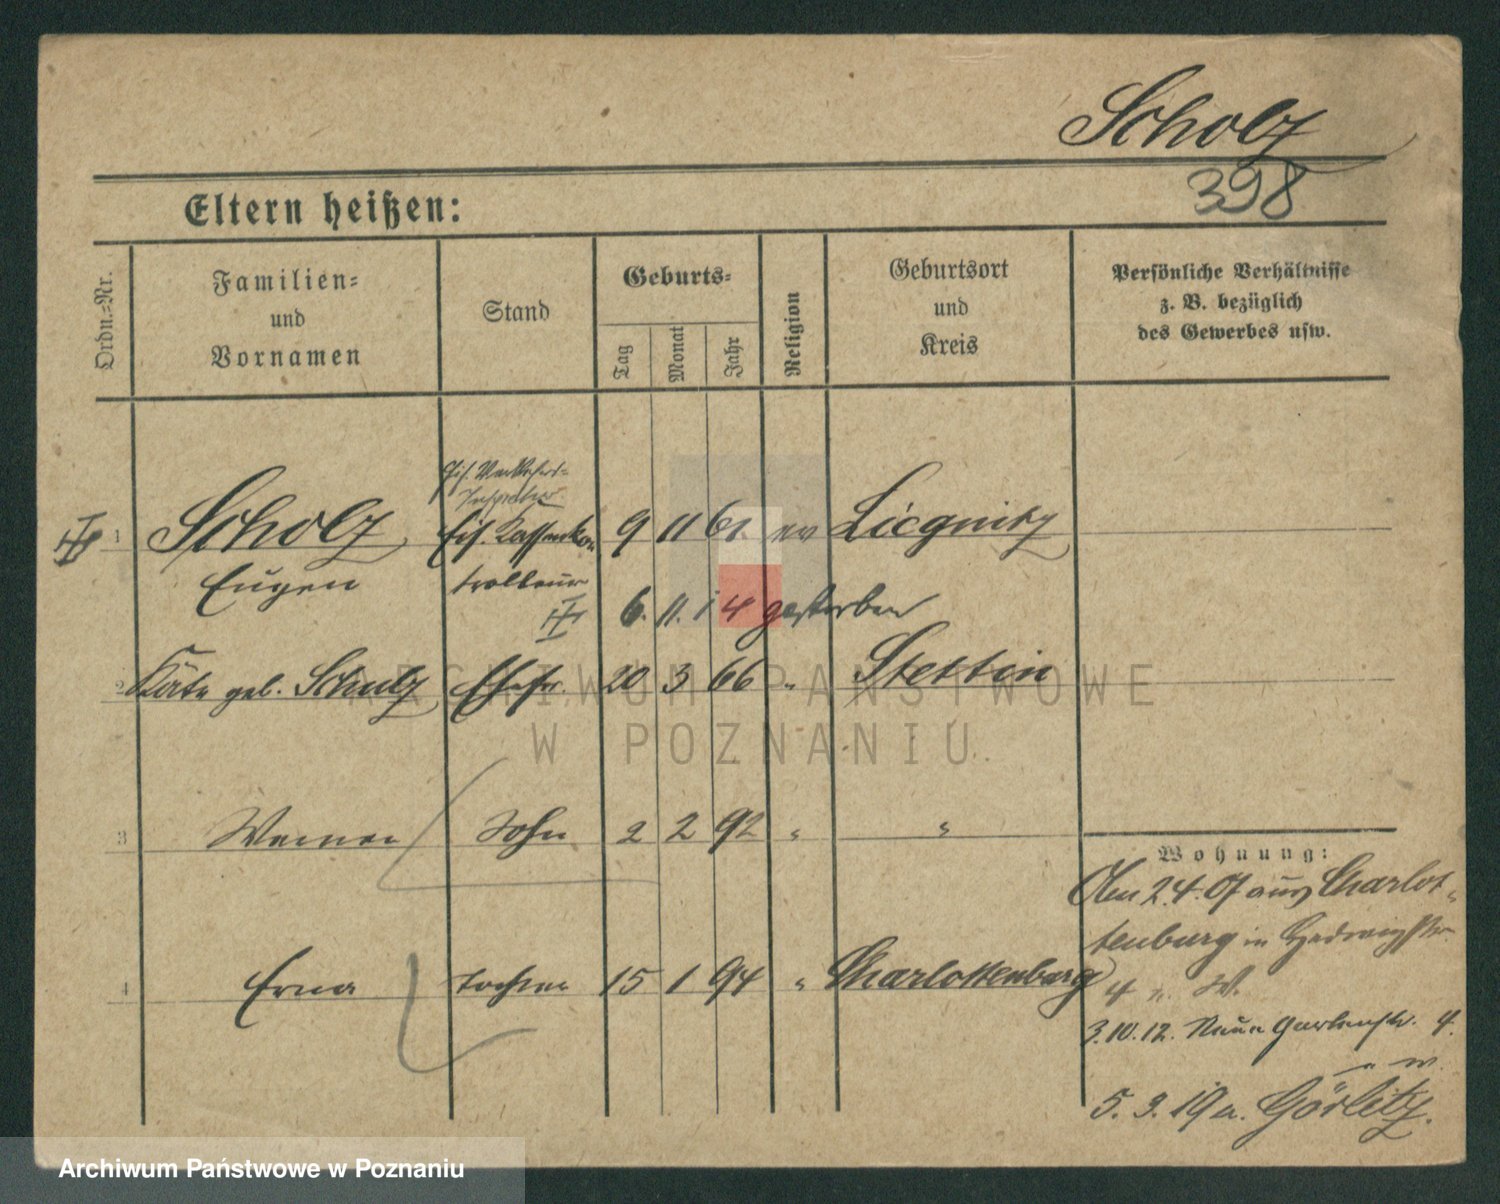 Scholz
398
Eltern heißen:
Ordn.=Nr.
Familien=
und
Vornamen
Stand
Geburts=
Tag
Monat
Jahr
Religion
Geburtsort
und
Kreis
Persönliche Verhältnisse
z. B. bezüglich
des Gewerbes usw.
1 Scholz Eis. Kassenkon 9 11 61. ev Liegnitz
Eugen trolleur
6. 11. 14 gestorben
2 Käte geb. Schulz Ehefr. 20 3 66 " Stettin
3 Werner Sohn 2 2 92 " "
Wohnung:
Am 2.4.07 aus Charlot-
tenburg in Hedwigstr.
4 Erna Tochter 15 1 94 " Charlottenburg
4 " W.
3.10.12. Neue Gartenstr. 4.
" W.
5. 3. 19 n. Görlitz.
ARCHIWUM PAŃSTWOWE
W POZNANIU
Archiwum Państwowe w Poznaniu